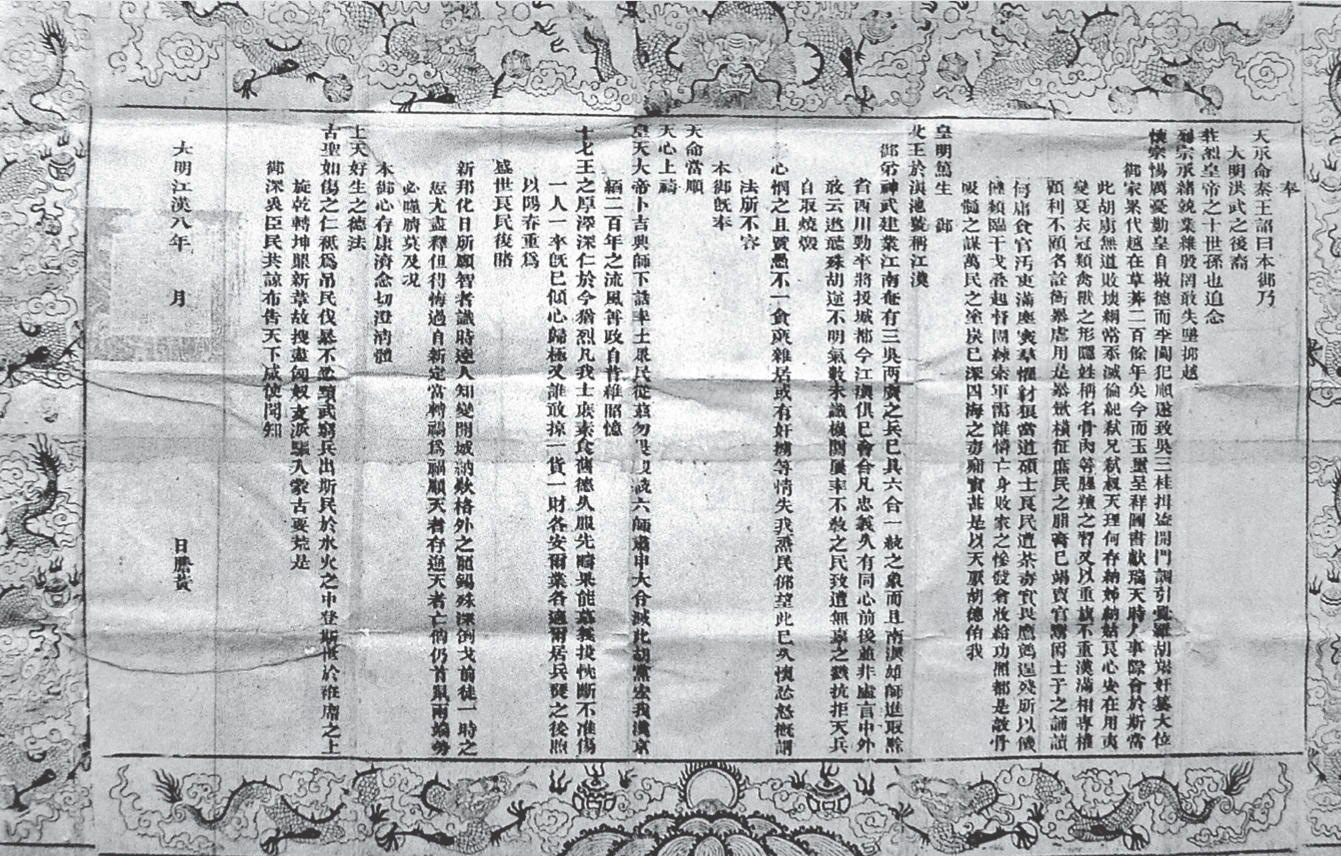 奉
天承命秦王詔曰本御乃
大明洪武之後裔
莊烈皇帝之十世孫也追念
列宗承緒兢業雖殷罔敢失墜抑越
懷宗惕厲憂勤皇自敬德而李闖犯順遂致吳三桂揖盜開門調引覺羅胡虜奸簒大位
御家累代越在草莽二百餘年矣今而玉璽呈祥圖書獻瑞天時人事際會於斯當
此胡虜無道敗壞綱常泰滅倫紀弒兄弒叔天理何存納姊納姑良心安在用夷
變夏衣冠類禽獸之形隱姓稱名骨肉等腥羶之習又以重旗不重漢滿相專權
顧利不顧名詮衡暴虐用是暴斂橫征庶民之脂膏已竭賣官鬻爵士子之誦讀
何庸貪官汚吏滿奧突羣懼豺狼當道碩士良民遭荼毒實畏鷹鸇逞殘所以饑
饉頻臨干戈叠起督團練索軍需誰憐亡身敗家之慘發倉收給功照都是敲骨
吸髓之謀萬民之塗炭已深四海之毒痡實甚是以天厭胡德佑我
皇明篤生 御
北王於滇池號稱江漢
御弟神武建業江南奄有三吳兩廣之兵已具六合一統之象而且南漢雄師進取黔
省西川勁卒將投城都今江漢俱已會合凡忠義久有同心前後並非虛言中外
敢云遐聽殊胡逆不明氣數未識機關屢率不敎之民致遭無辜之戮抗拒天兵
自取燒燬
心憫之且賢愚不一倉萸雜居或有奸擄等情失我烝民仰望此已久懷忿怒概謂
法所不容
本御旣奉
天命當順
天心上禱
皇天大帝卜吉興師下誥率土衆民從茲勿畏 六師肅申大合滅此胡黨宏我漢京
緬二百年之流風善政自昔維昭憶
十七王之厚澤深仁於今猶烈凡我士庶素食舊德久服先疇果能慕義投忱斷不准傷
一人一卒旣已傾心歸極又誰敢掠一貨一財各安爾業各適爾居兵燹之後煦
以陽春重爲
盛世良民復睹
新邦化日所願智者識時達人知變開城納欵格外之寵錫殊深倒戈前徒一時之
愆尤盡釋但得悔過自新定當轉禍爲福順天者存逆天者亡倘仍首鼠兩端勢
必噬臍莫及况
本御心存康濟念切澄淸體
上天好生之德法
古聖如傷之仁祗爲吊民伐暴不忍黷武窮兵出斯民於水火之中登斯世於衽席之上
旋乾轉坤聿新葦故搜盡匈奴支派驅入蒙古要荒是
御深與臣民共諒布告天下咸使聞知
大明江漢八年 月 日謄黃